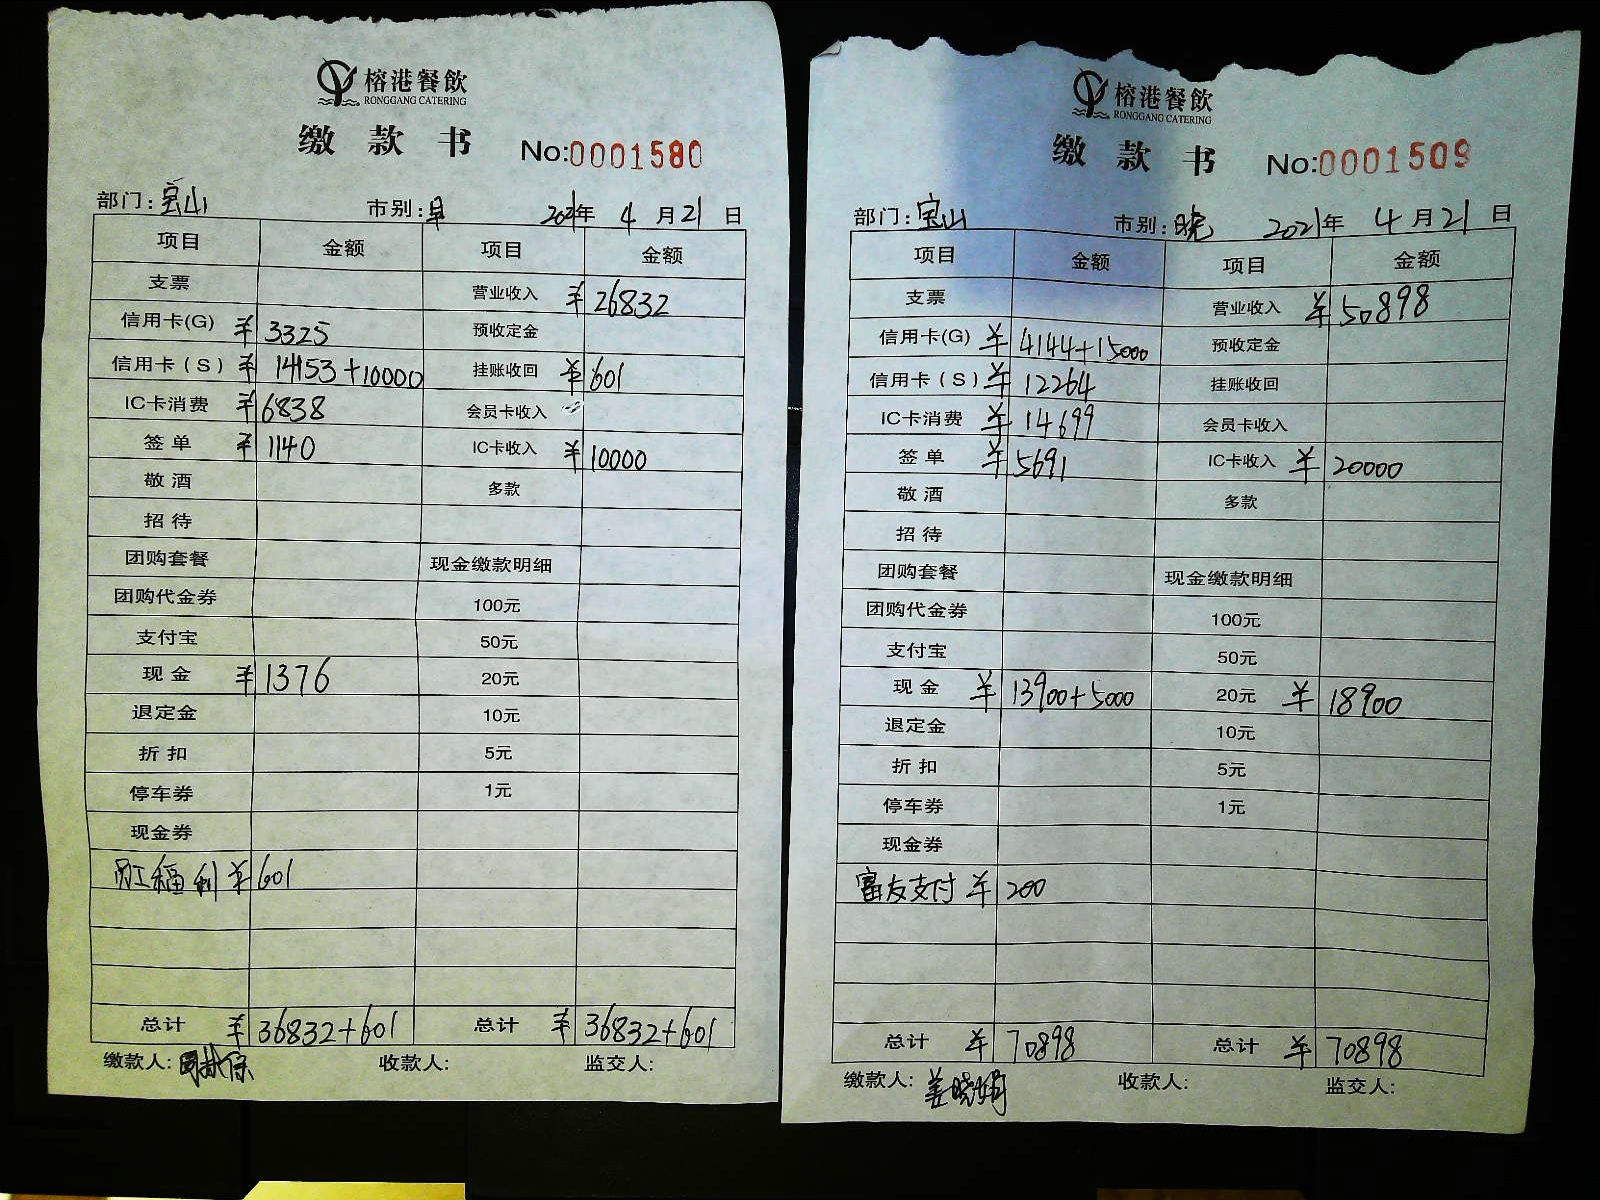 榕港餐飲
RONGGANG CATERING
缴款书 No:0001580
部门:宝山 市别:早 2021年 4月21日
项目 金额 项目 金额
支票 营业收入 ¥26832
信用卡(G) ¥3325 预收定金
信用卡(S) ¥14153+10000 挂账收回 ¥601
IC卡消费 ¥6838 会员卡收入
签单 ¥1140 IC卡收入 ¥10000
敬酒 多款
招待
团购套餐 现金缴款明细
团购代金券 100元
支付宝 50元
现金 ¥1376 20元
退定金 10元
折扣 5元
停车券 1元
现金券
员工福利 ¥601
总计 ¥36832+601 总计 ¥36832+601
缴款人: 收款人: 监交人:
榕港餐飲
RONGGANG CATERING
缴款书 No:0001509
部门:宝山 市别:晚 2021年 4月21日
项目 金额 项目 金额
支票 营业收入 ¥50898
信用卡(G) ¥4144+15000 预收定金
信用卡(S) ¥12264 挂账收回
IC卡消费 ¥14699 会员卡收入
签单 ¥5691 IC卡收入 ¥20000
敬酒 多款
招待
团购套餐 现金缴款明细
团购代金券 100元
支付宝 50元
现金 ¥13900+5000 20元 ¥18900
退定金 10元
折扣 5元
停车券 1元
现金券
富友支付 ¥200
总计 ¥70898 总计 ¥70898
缴款人:姜晓娟 收款人: 监交人: